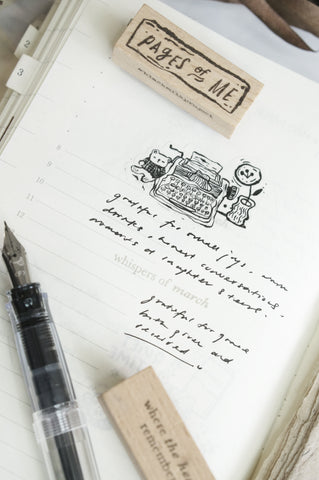 PAGES of ME
2
3
8
9
10
11
12
grateful for small joys, warm
drinks, honest conversations,
moments of laughter & tears.
whispers of march
grateful for grace
both given and
received.
where the he
remembe